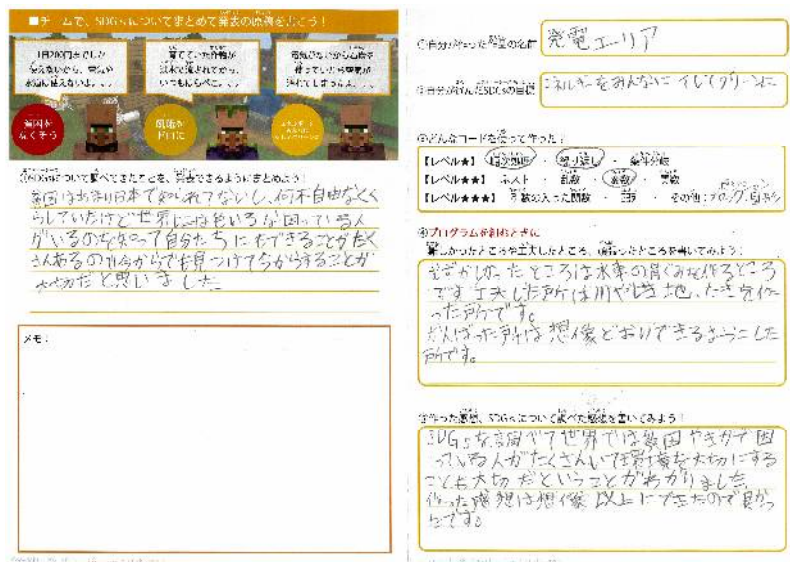 ■チームで、SDGsについてまとめて発表の原稿を書こう！
1日200円までしか
使えないから、電気や
水道は使えないよ。。。
育てていた作物が
洪水で流されてから、
いつもはらぺこ。。。
電気がないから石炭を
使っていたら空気が
汚れてしまったよ。。。
貧困を
なくそう
飢餓を
ゼロに
①SDGsについて調べてきたことを、発表できるようにまとめよう！
貧困はあまり日本で知られてないし、何不自由なくく
らしていたけど世界には色いろな困っている人
がいるのを知って自分たちにもできることがたく
さんあるので今からでも見つけてちからすることが
大切だと思いました
メモ：
①自分が作った発電の名前
発電エーリア
②自分が選んだSDGsの目標
エネルギーをみんなに そしてクリーンに
③どんなコードを使って作った？
【レベル★】 順次処理 ・ 繰り返し ・ 条件分岐
【レベル★★】 リスト ・ 乱数 ・ 変数 ・ 関数
【レベル★★★】 引数の入った関数 ・ ・ その他：
④プログラムを創るときに
難しかったところや工夫したところ、頑張ったところを書いてみよう！
むずかしかったところは水車の骨ぐみを作るところ
です工夫した所は川や堤地、たきを作
った所です。
がんばった所は想像どおりできるようにした
所です。
⑤作った感想、SDGsについて調べた感想を書いてみよう！
SDGsを調べて世界では貧困やきがで困
っている人がたくさんいて環境を大切にする
ことも大切だということがわかりました
作った感想は想像以上にできたので良かっ
たです。